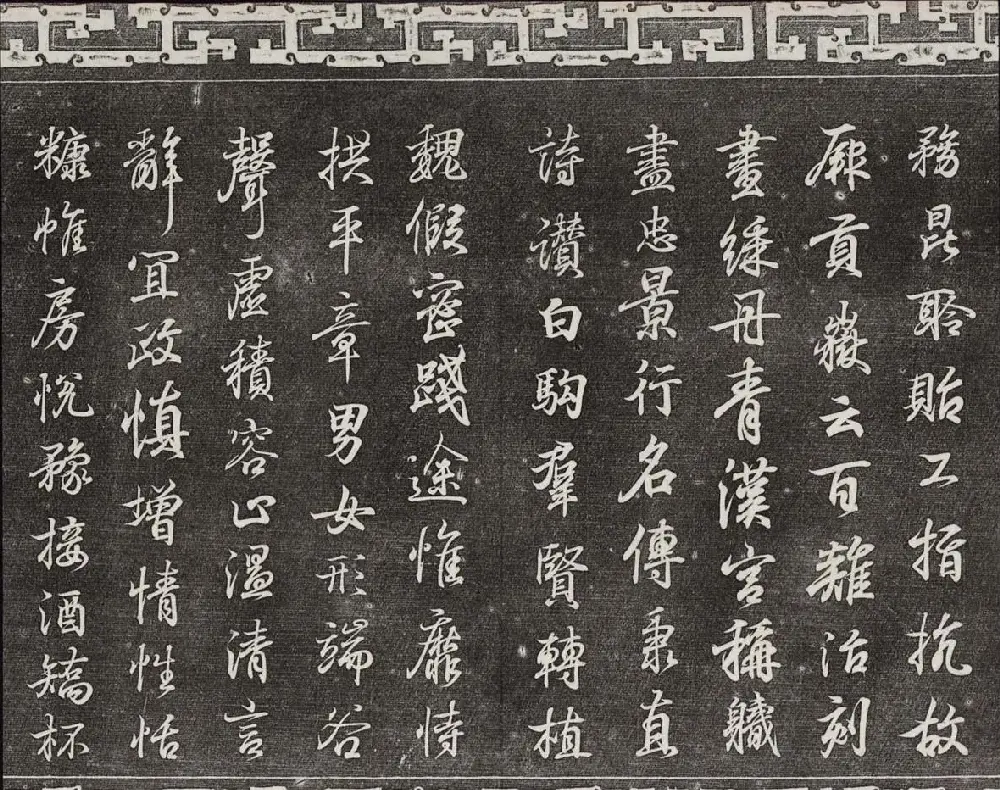 務昆聆貽工指抗故
厥貢嶽云百雞治刻
畫綵丹青漢宫稱軄
盡忠景行名傳秉直
詩讃白駒羣賢轉植
魏假密踐途惟靡恃
拱平章男女形端谷
聲虛積容止溫清言
辭宜政慎增情性恬
糠帷房悅豫接酒矯杯